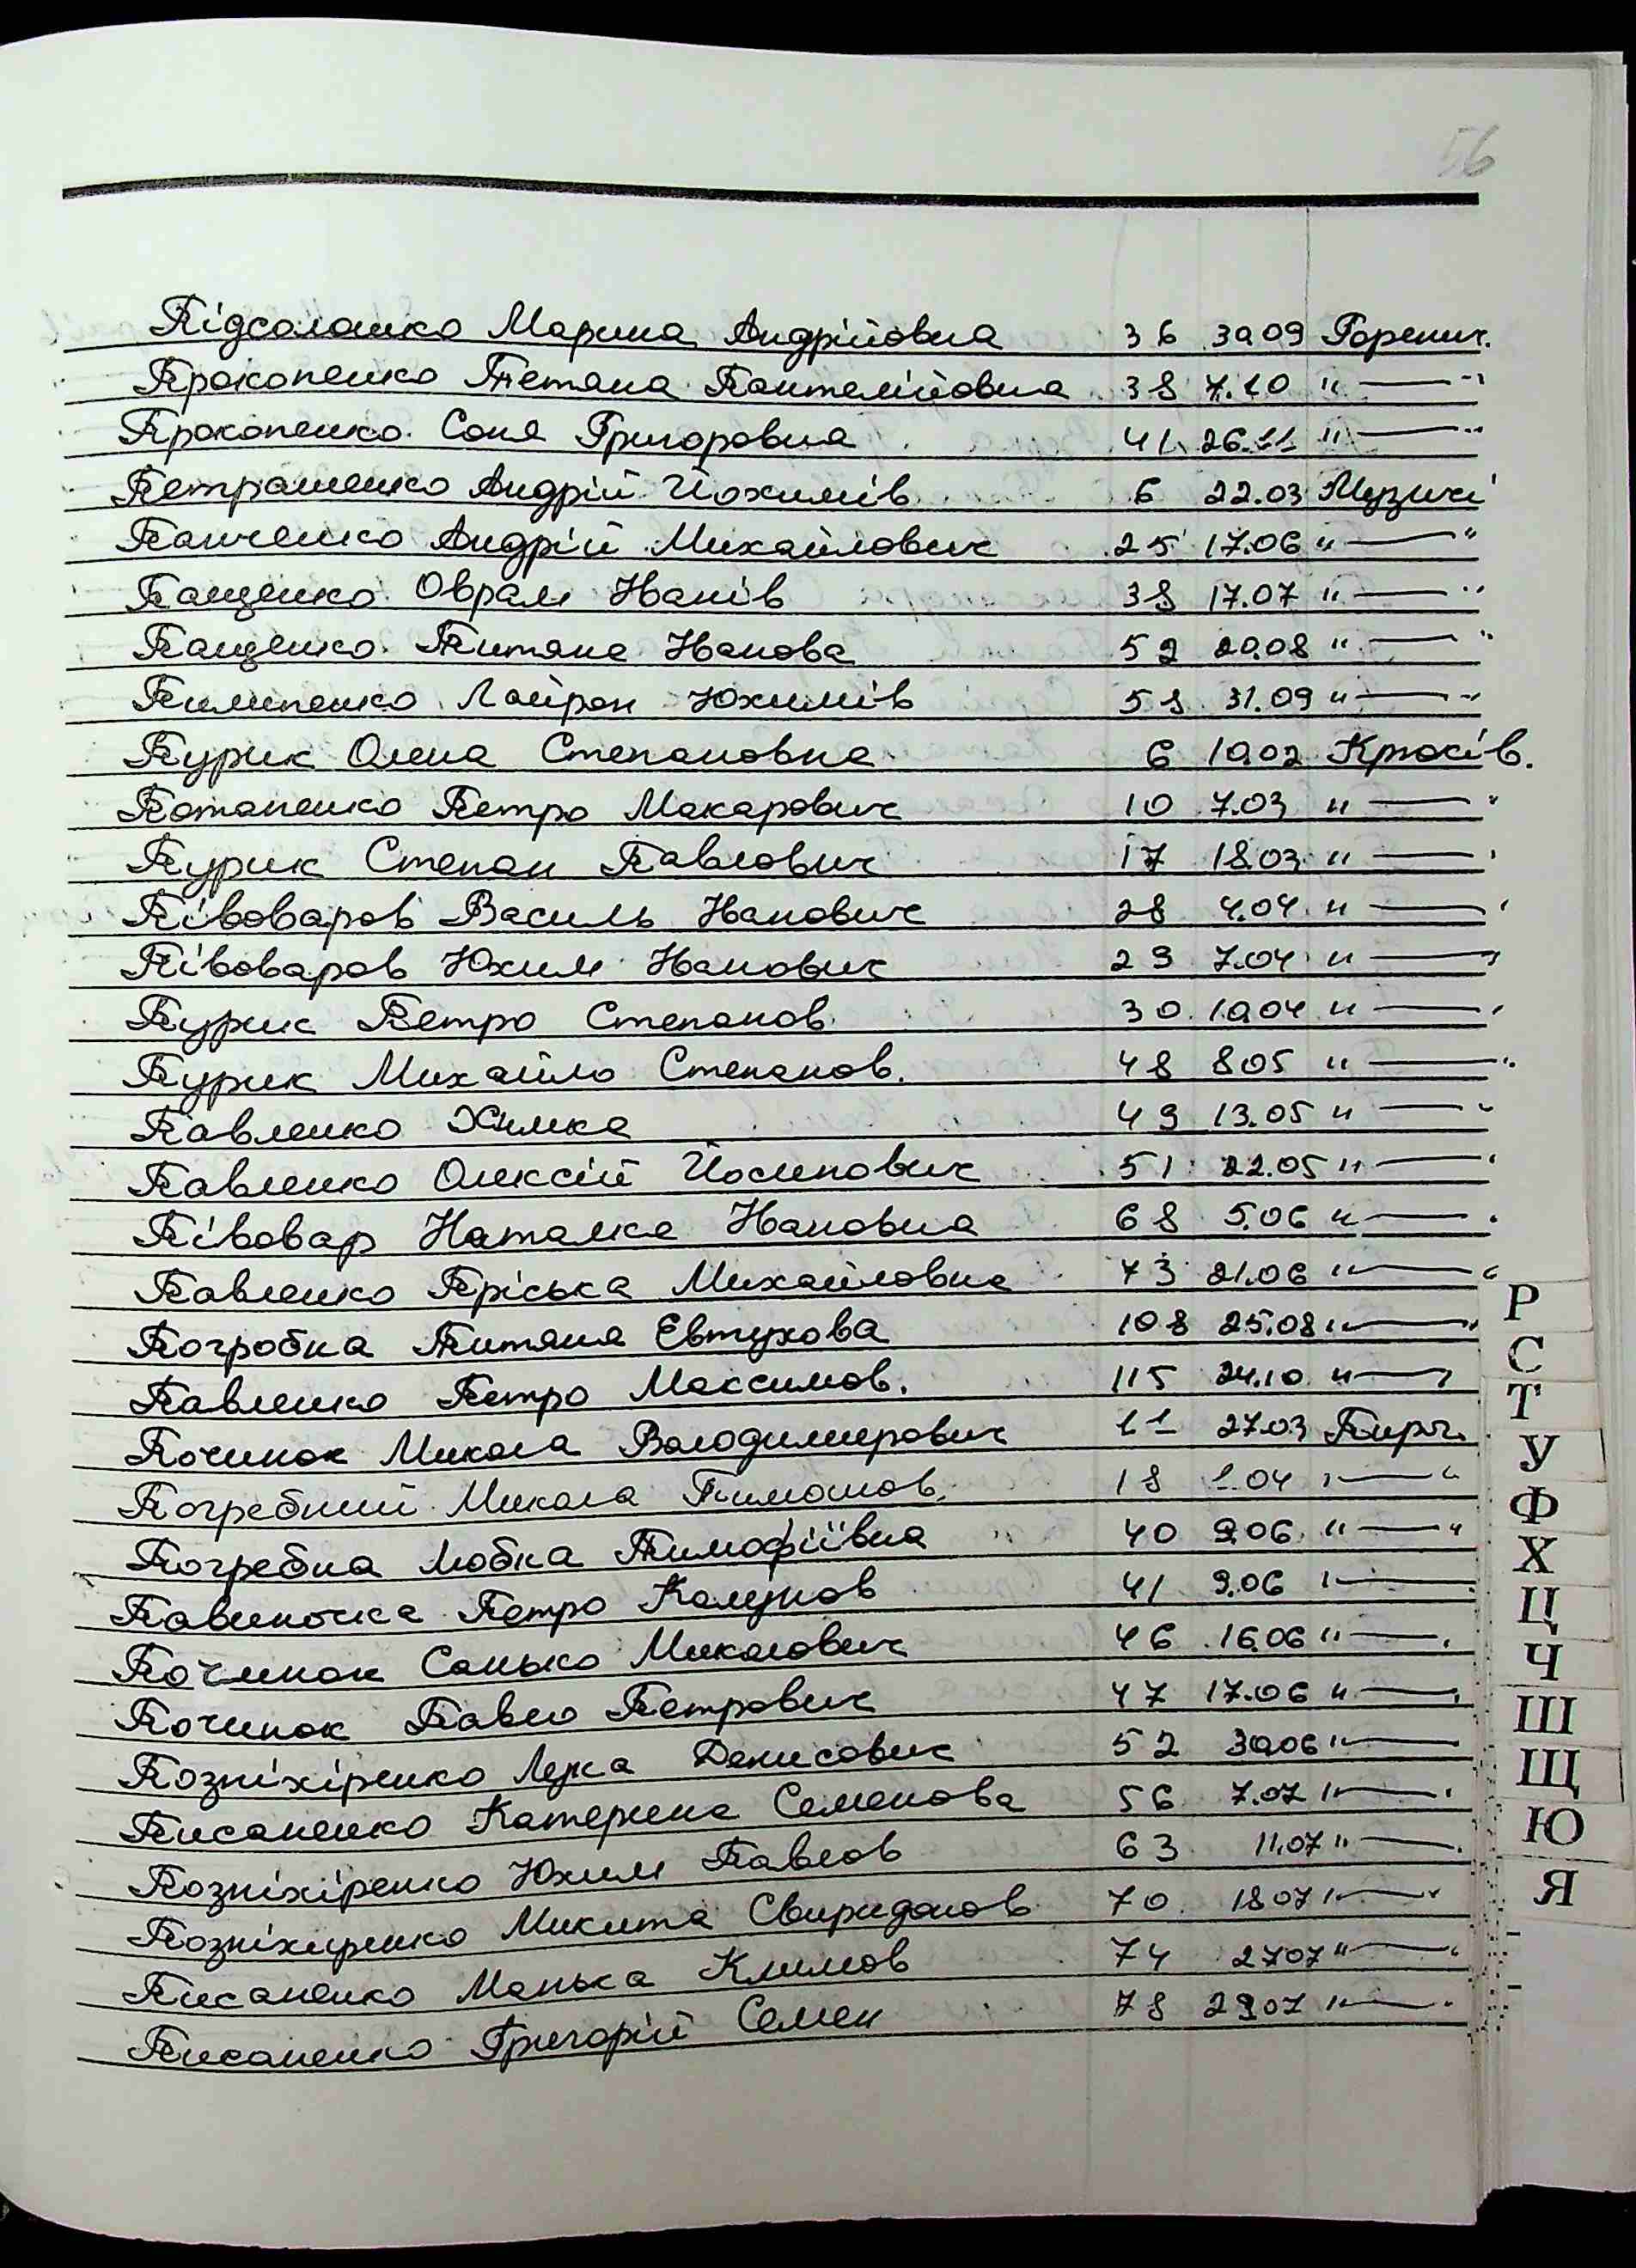 56
Підсоланко Марина Андрійовна 36 30.09 Горенич.
Прокопенко Тетяна Пантелійовна 38 7.10 "—"
Прокопенко Соня Григоровна 41 26.11 "—"
Петрашенко Андрій Йохимів 6 22.03 Музичі
Панченко Андрій Михайлович 25 17.06 "—"
Пащенко Оврам Іванів 38 17.07 "—"
Пащенко Титяна Іванова 52 20.08 "—"
Пилипенко Лаврон Юхимів 58 31.09 "—"
Пурик Олена Степановна 6 10.02 Крюків.
Потапенко Петро Макарович 10 7.03 "—"
Пурик Степан Павлович 17 18.03 "—"
Півоваров Василь Іванович 28 4.04 "—"
Півоваров Юхим Іванович 29 7.04 "—"
Пурик Петро Степанов 30 10.04 "—"
Пурик Михайло Степанов. 48 8.05 "—"
Павленко Химка 49 13.05 "—"
Павленко Олексій Йосипович 51 22.05 "—"
Півовар Наталка Івановна 68 5.06 "—"
Павленко Пріська Михайловна 73 21.06 "—"
Погробна Титяна Евтухова 108 25.08 "—"
Павленко Петро Максимов. 115 24.10 "—"
Починок Микола Володимирович 11 27.03 Бирч.
Погребний Микола Тимошов. 18 1.04 "—"
Погребна Любка Тимофіївна 40 9.06 "—"
Павлючка Петро 41 9.06 "—"
Починок Санько Миколович 46 16.06 "—"
Починок Павло Петрович 47 17.06 "—"
Позніхіренко Лука Денисович 52 30.06 "—"
Писаненко Катерина Семенова 56 7.07 "—"
Позніхіренко Юхим Павлов 63 11.07 "—"
Позніхиренко Микита Свиридонов 70 18.07 "—"
Писаненко Манька Климов 74 27.07 "—"
Писаненко Григорій Семен 78 29.07 "—"
Р
С
Т
У
Ф
Х
Ц
Ч
Ш
Щ
Ю
Я